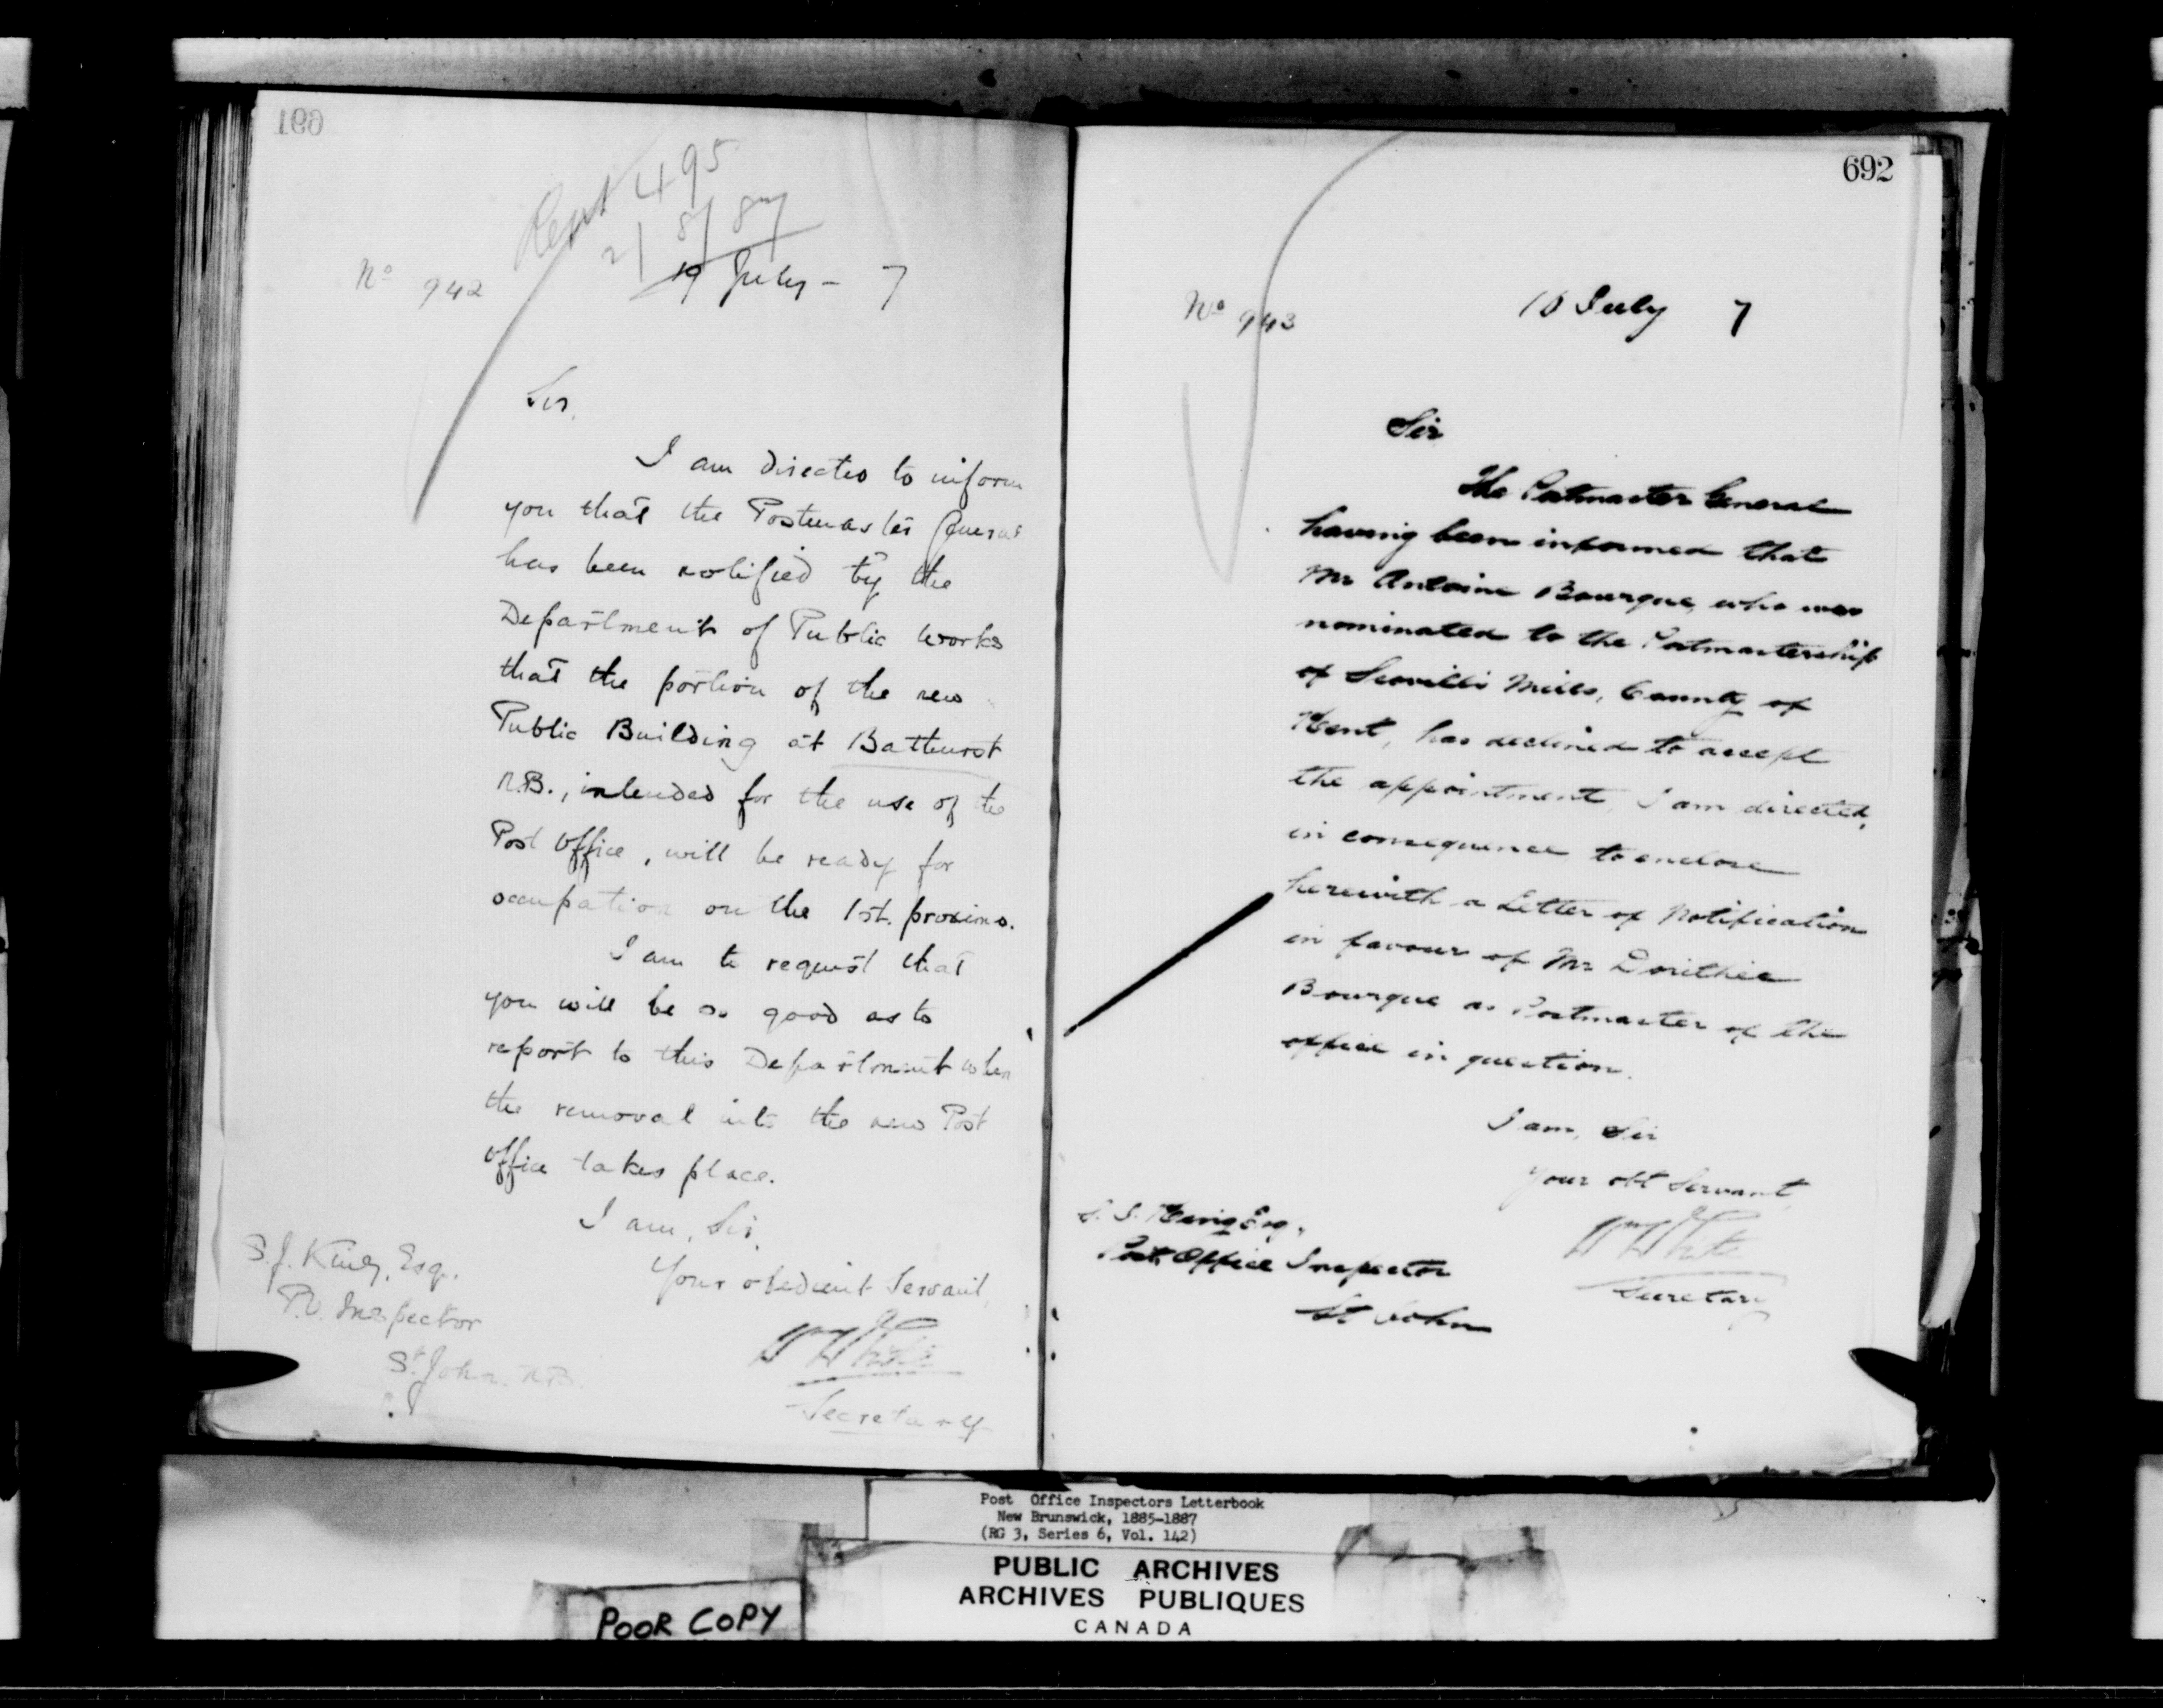 691
Rept 495
2/8/87
No 942
19 July - 7
Sir,
I am directed to inform
you that the Postmaster General
has been notified by the
Department of Public Works
that the portion of the new
Public Building at Bathurst
N.B., intended for the use of the
Post Office, will be ready for
occupation on the 1st. proximo.
I am to request that
you will be so good as to
report to this Department when
the removal into the new Post
Office takes place.
I am, Sir,
Your obedient Servant,
Wm White
Secretary
S. J. King, Esq.
P.O. Inspector
St. John. N.B.
692
No 943
16 July 7
Sir
The Postmaster General
having been informed that
Mr Antoine Bourque, who was
nominated to the Postmastership
of Scovill's Mills, County of
Kent, has declined to accept
the appointment, I am directed,
in consequence, to enclose
herewith a Letter of Notification
in favour of Mr Dorithée
Bourque as Postmaster of the
office in question.
I am, Sir
Your obt Servant
Wm White
Secretary
S. J. King Esq.,
Post Office Inspector
St John
Post Office Inspectors Letterbook
New Brunswick, 1885-1887
(RG 3, Series 6, Vol. 142)
PUBLIC ARCHIVES
ARCHIVES PUBLIQUES
CANADA
POOR COPY